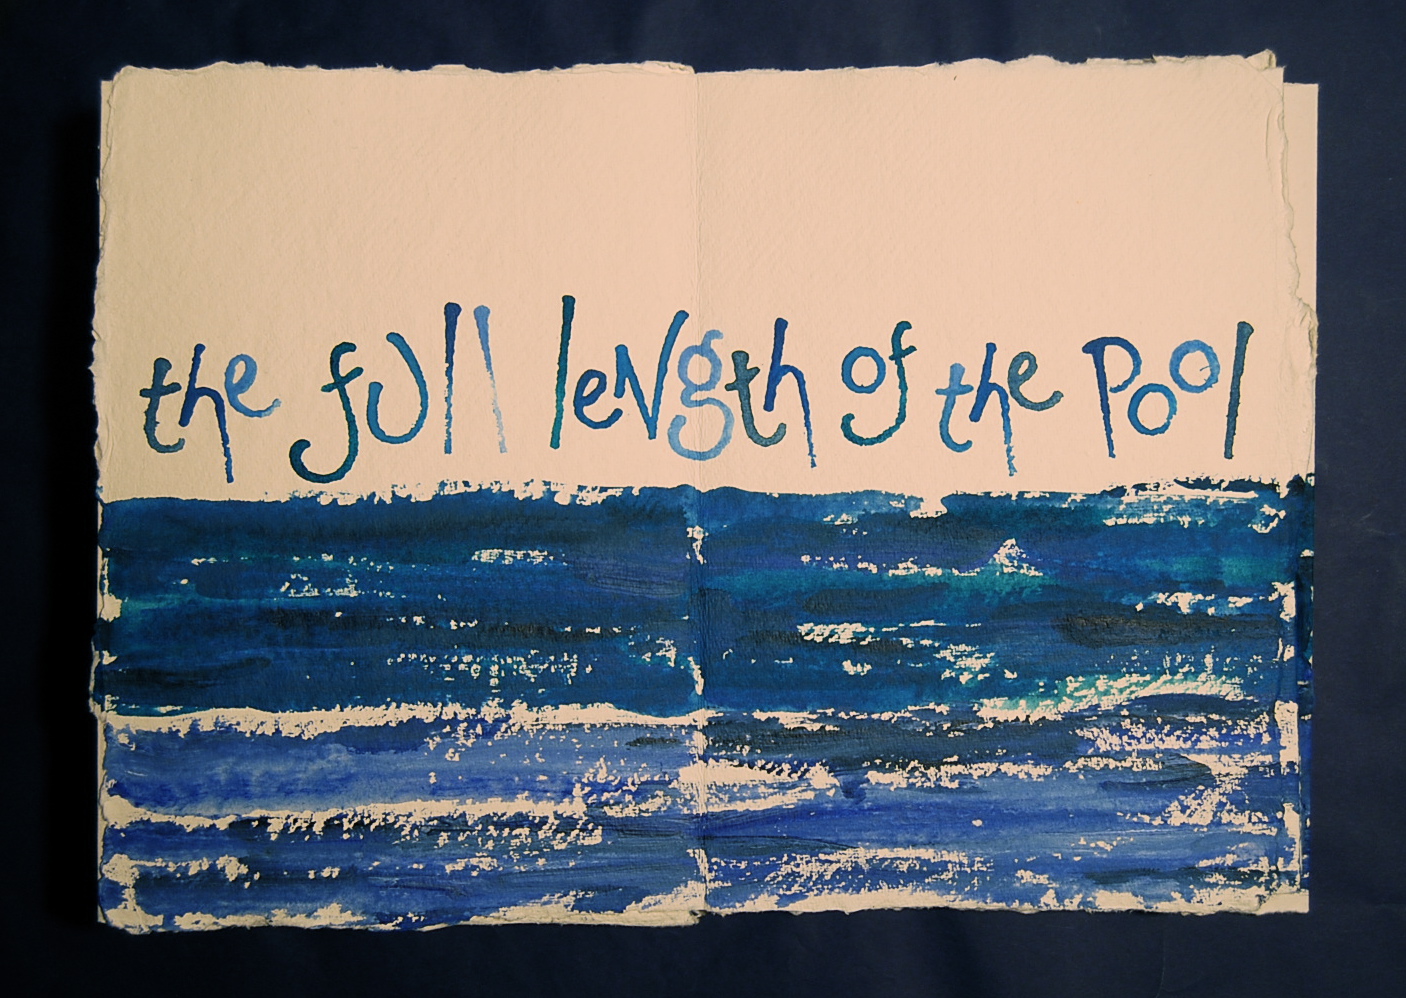 the full leNgth of the Pool